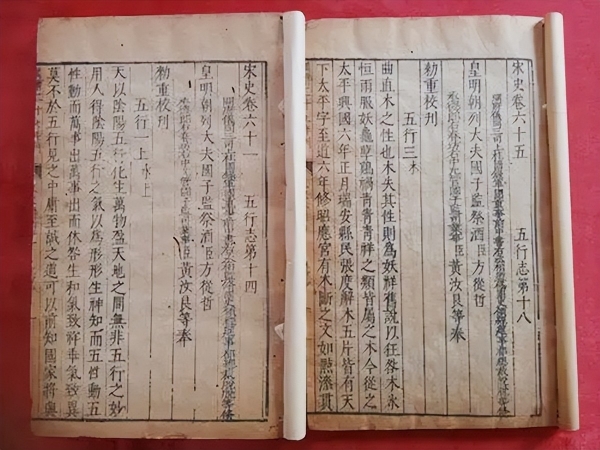 宋史卷六十一 五行志第十四
皇明朝列大夫國子監祭酒臣方從哲
承德郎右春坊右中允管國子監司業事臣黃汝良等奉
勑重校刊
五行一上 水上
天以陰陽五行化生萬物盈天地之間無非五行之妙
用人得陰陽五行之氣以爲形形生神知而五性動五
性動而萬事出萬事出而休咎生和氣致祥乖氣致異
莫不於五行見之中庸至誠之道可以前知國家將興
宋史卷六十五 五行志第十八
皇明朝列大夫國子監祭酒臣方從哲
承德郎右春坊右中允管國子監司業事臣黃汝良等奉
勑重校刊
五行三 木
曲直木之性也木失其性則爲妖祥舊說以狂咎木冰
恒雨服妖龜孽雞禍青眚青祥之類皆屬之木今從之
太平興國六年正月瑞安縣民張度解木五片皆有天
下太平字至道六年修昭應宮有木斷之文如點漆貫